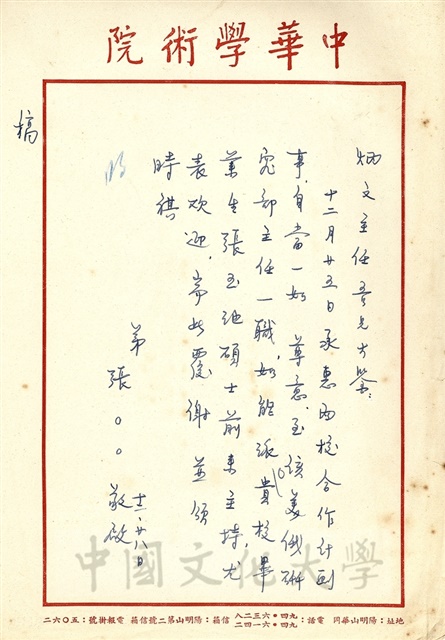 中華學術院
炳文主任吾兄大鑒:
十二月廿五日承惠兩校合作計劃
事,自當一如 尊意.至該美俄研
究部主任一職,如能派貴校畢
業生張玉池碩士前來主持,尤
表欢迎.耑此覆謝並頌
時祺
弟 張○○敬啟
十二、廿八日
稿
中國文化大學
地址:陽明山華岡 電話:九四•六三二八 九四•六一四二 信箱:陽明山第二號信箱 電報掛號:五〇六二